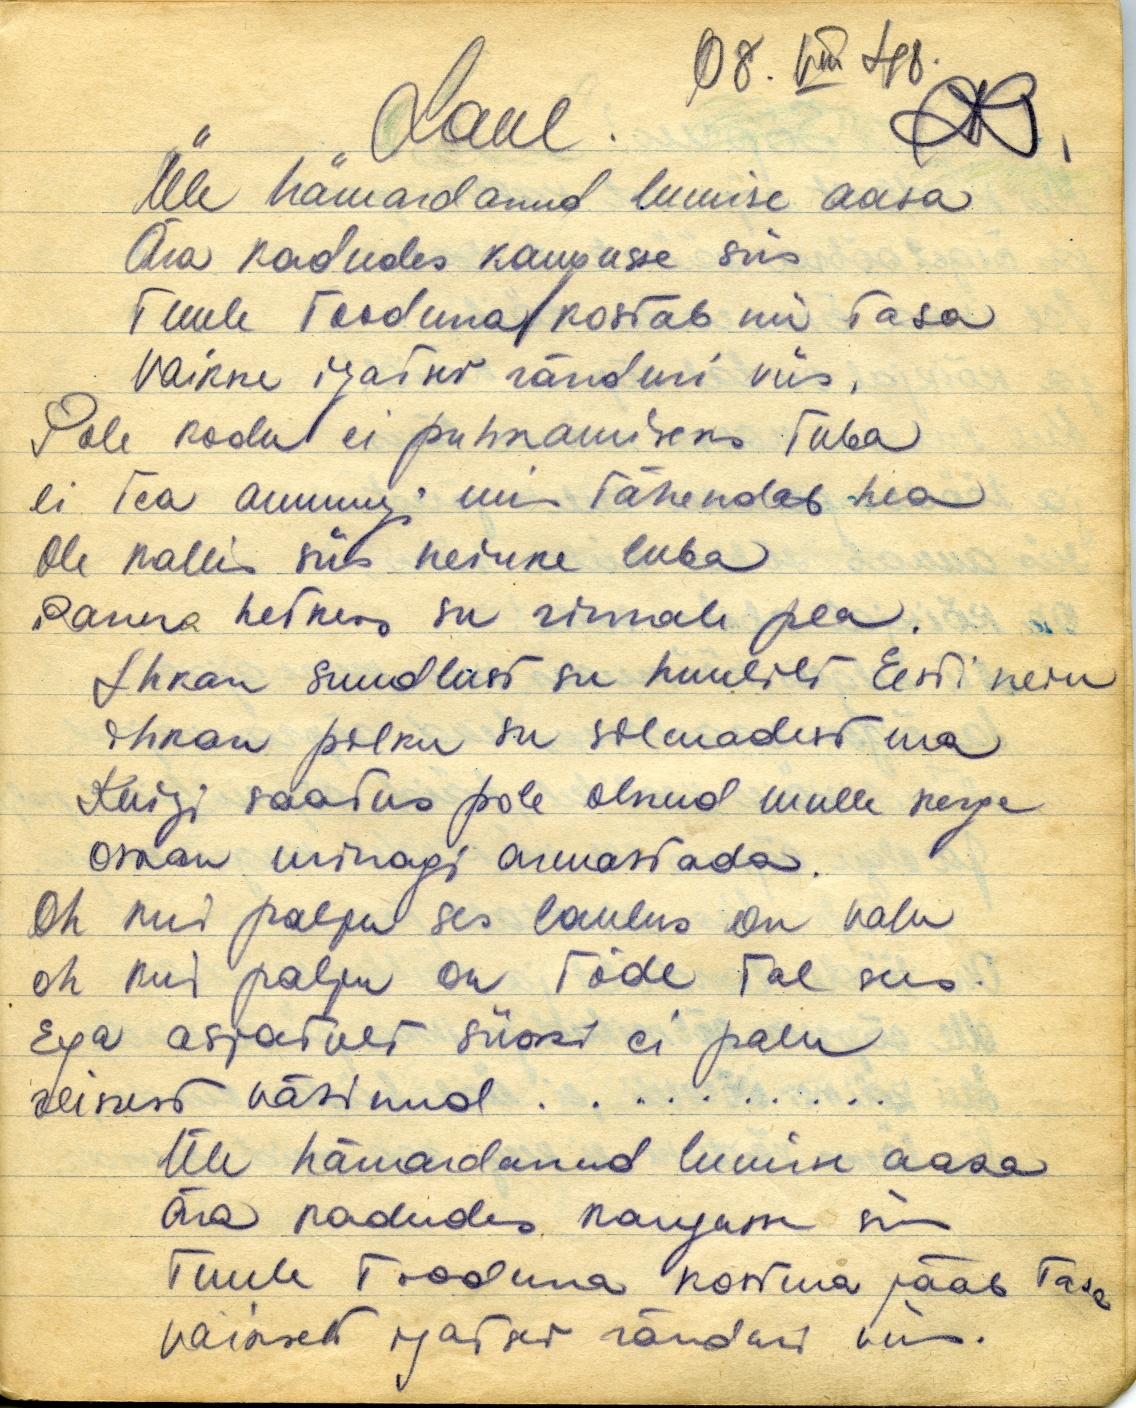 08. VIII 48.
„Laul".
Üle hämardanud lumise aasa
Ära kadudes kaugusse siis
Tuule tooduna kostab nii tasa
Vaikne igatsev ränduri viis.
Pole kodu ei puhkamiseks tuba
ei tea ammugi mis tähendab hea
Ole kallis siis neiuke luba
Panna hetkeks su rinnale pea.
Ihkan suudlust su huulilt Eesti neiu
ihkan pilku su silmadest ma
Kuigi saatus pole olnud mulle kerge
oskan minagi armastada.
Oh kui palju ses laulus on valu
oh kui palju on tõde tal sees.
Ega asjatult siiski ei palu
reisest väsinud . . . . . . . . . . .
Üle hämardanud lumise aasa
Ära kadudes kaugusse siis
Tuule tooduna kostma jääb tasa
vaikselt igatsev ränduri viis.